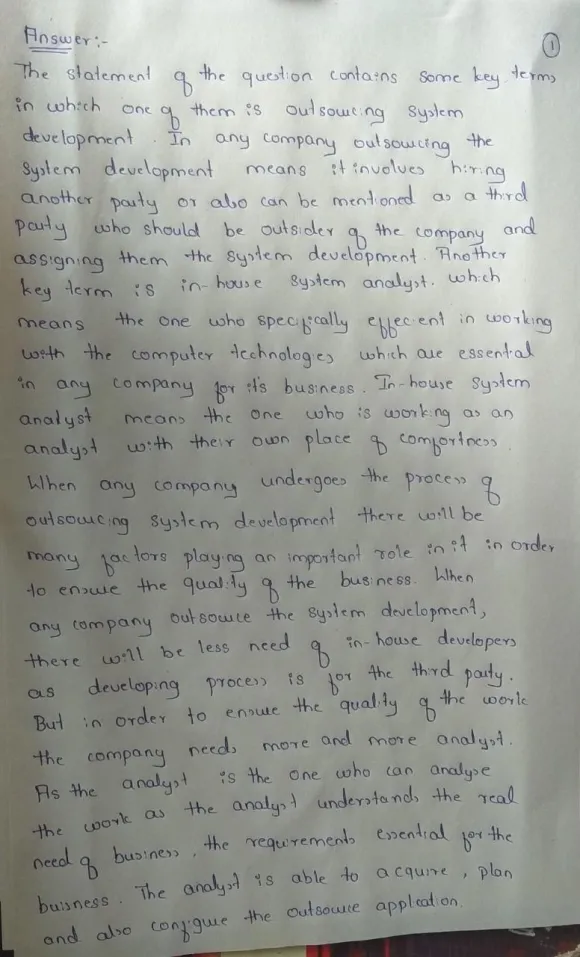 Answer:-
1
The statement of the question contains some key terms
in which one of them is outsourcing system
development. In any company outsourcing the
system development means it involves hiring
another party or also can be mentioned as a third
party who should be outsider of the company and
assigning them the system development. Another
key term is in-house system analyst. which
means the one who specifically effecient in working
with the computer technologies which are essential
in any company for it's business. In-house system
analyst means the one who is working as an
analyst with their own place of comfortness.
When any company undergoes the process of
outsourcing system development there will be
many factors playing an important role in it in order
to ensure the quality of the business. When
any company outsource the system development,
there will be less need of in-house developers
as developing process is for the third party.
But in order to ensure the quality of the work
the company needs more and more analyst.
As the analyst is the one who can analyse
the work as the analyst understands the real
need of business, the requirements essential for the
buisness. The analyst is able to acquire, plan
and also configure the outsource applcation.